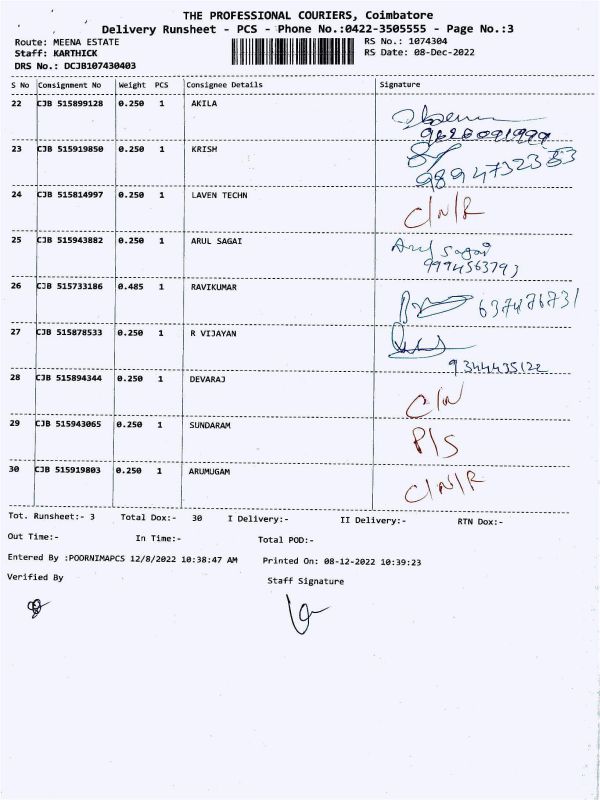 THE PROFESSIONAL COURIERS, Coimbatore
Delivery Runsheet - PCS - Phone No.:0422-3505555 - Page No.:3
Route: MEENA ESTATE RS No.: 1074304
Staff: KARTHICK RS Date: 08-Dec-2022
DRS No.: DCJB107430403
S No Consignment No Weight PCS Consignee Details Signature
22 CJB 515899128 0.250 1 AKILA
9626091999
23 CJB 515919850 0.250 1 KRISH
9894732353
24 CJB 515814997 0.250 1 LAVEN TECHN C/N/R
25 CJB 515943882 0.250 1 ARUL SAGAI Arul Sagai
9994563793
26 CJB 515733186 0.485 1 RAVIKUMAR 637476731
27 CJB 515878533 0.250 1 R VIJAYAN
9344435122
28 CJB 515894344 0.250 1 DEVARAJ C/N
29 CJB 515943065 0.250 1 SUNDARAM P/S
30 CJB 515919803 0.250 1 ARUMUGAM C/N/R
Tot. Runsheet:- 3 Total Dox:- 30 I Delivery:- II Delivery:- RTN Dox:-
Out Time:- In Time:- Total POD:-
Entered By :POORNIMAPCS 12/8/2022 10:38:47 AM Printed On: 08-12-2022 10:39:23
Verified By Staff Signature